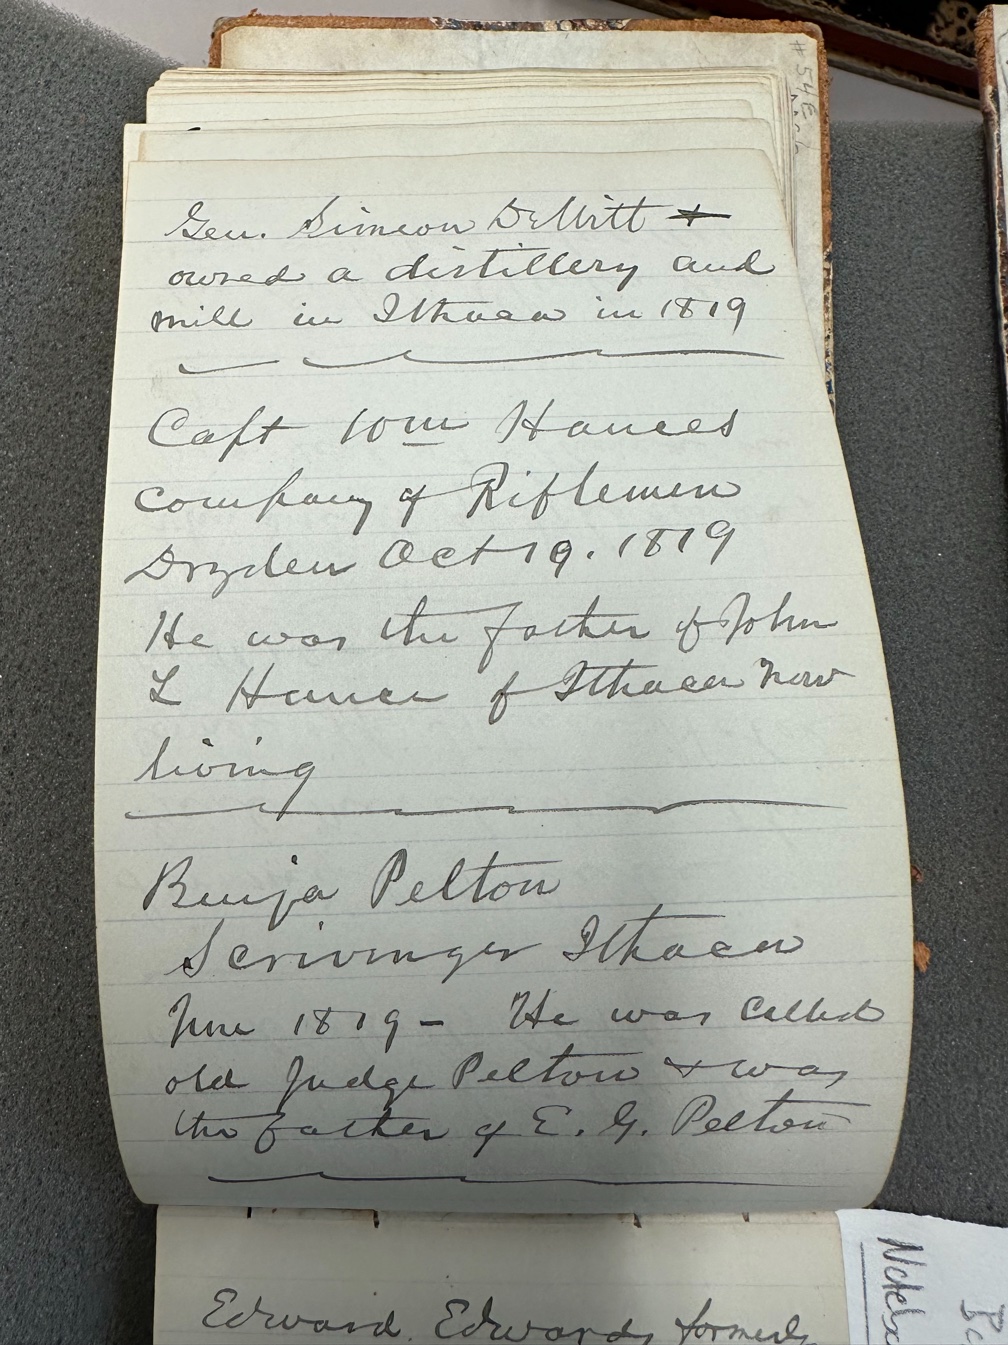 Gen. Simeon DeWitt +
owned a distillery and
mill in Ithaca in 1819
Capt Wm Hances
company of Riflemen
Dryden Oct 19. 1819
He was the father of John
L Hance of Ithaca now
living
Benja Pelton
Scrivinger Ithaca
June 1819 - He was called
old Judge Pelton & was
the father of E. G. Pelton
Edward Edwards formerly
# 54E